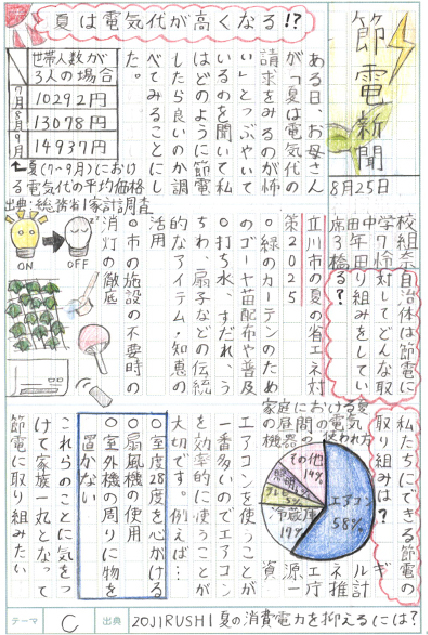 節電新聞
8月25日
夏は電気代が高くなる!?
ある日、お母さん
が「夏は電気代の
請求をみるのが怖
い」とつぶやいて
いるのを聞いて私
はどのように節電
したら良いのか調
べてみることにし
た。
世帯人数が
3人の場合
7月 10292円
8月 13078円
9月 14937円
←夏(7〜9月)におけ
る電気代の平均価格
出典:総務省「家計調査」
自治体は節電に
対してどんな取
り組みをしてい
る?
立川市の夏の省エネ対
策2025
○緑のカーテンのため
のゴーヤ苗配布や普及
○打ち水、すだれ、う
ちわ、扇子などの伝統
的なアイテム・知恵の
活用
○市の施設の不要時の
消灯の徹底
ON
OFF
私たちにできる節電の
取り組みは?
家庭における夏
エアコン
58%
冷蔵庫
17%
その他
14%
エアコンを使うことが
一番多いのでエアコン
を効率的に使うことが
大切です。例えば…
○室度28度を心がける
○扇風機の使用
○室外機の周りに物を
置かない
これらのことに気をつ
けて家族一丸となって
節電に取り組みたい
テーマ
C
出典
ZOJIRUSHI 夏の消費電力を抑えるには?